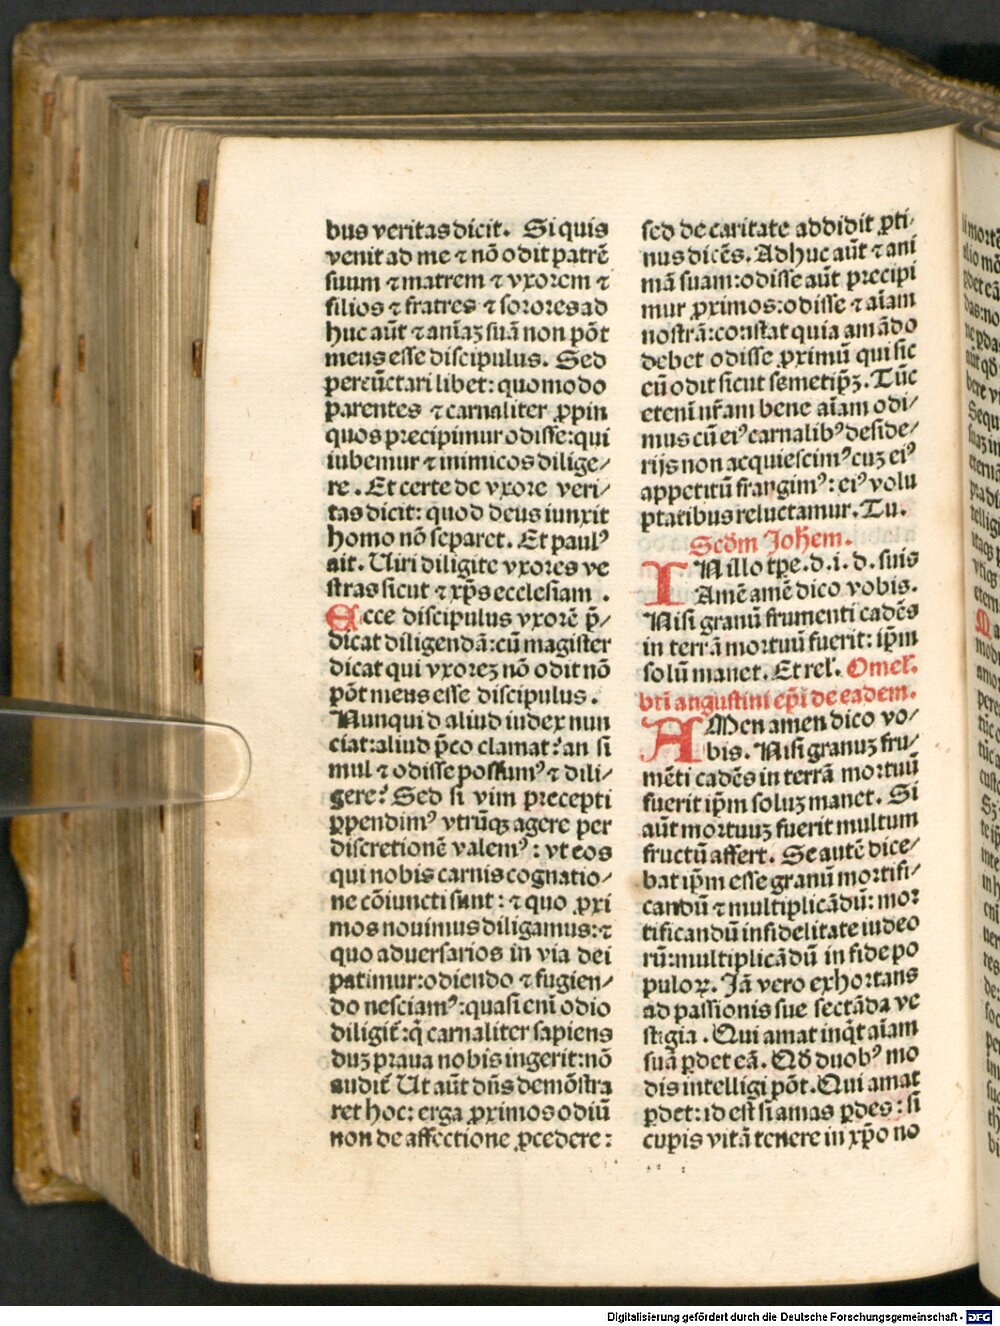 bus veritas dicit. Si quis
venit ad me ⁊ nō odit patrē
suum ⁊ matrem ⁊ vxorem ⁊
filios ⁊ fratres ⁊ sorores ad
huc aūt ⁊ anīaꝫ suā non pōt
meus esse discipulus. Sed
percūctari libet: quomodo
parentes ⁊ carnaliter ꝓpin
quos precipimur odisse: qui
iubemur ⁊ inimicos dilige/
re. Et certe de vxore veri/
tas dicit: quod deus iunxit
homo nō separet. Et paulꝰ
ait. Uiri diligite vxores ve
stras sicut ⁊ xp̄s ecclesiam.
Ecce discipulus vxorē p̄/
dicat diligendā: cū magister
dicat qui vxoreꝫ nō odit nō
pōt meus esse discipulus.
Nunquid aliud iudex nun
ciat: aliud p̄co clamat? an si
mul ⁊ odisse possumꝰ ⁊ dili/
gere? Sed si vim precepti
ꝑpendimꝰ vtrūqꝫ agere per
discretionē valemꝰ: vt eos
qui nobis carnis cognatio/
ne cōiuncti sunt: ⁊ quo ꝓxi
mos nouimus diligamus: ⁊
quo aduersarios in via dei
patimur: odiendo ⁊ fugien/
do nesciamꝰ: quasi eni odio
diligit̄: q̄ carnaliter sapiens
duꝫ praua nobis ingerit: nō
audit̄ Ut aūt dn̄s demōstra
ret hoc: erga ꝓximos odiū
non de affectione ꝓcedere:
sed de caritate addidit ꝓti/
nus dicēs. Adhuc aūt ⁊ ani
mā suam: odisse aūt precipi
mur ꝓximos: odisse ⁊ aīam
nostrā: constat quia amādo
debet odisse ꝓximū qui sic
eū odit sicut semetip̄ꝫ. Tūc
etenī nr̄am bene aīam odi/
mus cū eiꝰ carnalibꝰ deside/
rijs non acquiescimꝰ cuꝫ eiꝰ
appetitū frangimꝰ: eiꝰ volu
ptatibus reluctamur. Tu.
Scd̄m Joh̄em.
IN illo tp̄e. d. i. d. suis
Amē amē dico vobis.
Nisi granū frumenti cadēs
in terrā mortuū fuerit: ip̄m
solū manet. Et rel̄. Omel̄.
bt̄i augustini ep̄i de eadem.
AMen amen dico vo/
bis. Nisi granuꝫ fru/
mēti cadēs in terrā mortuū
fuerit ip̄m soluꝫ manet. Si
aūt mortuuꝫ fuerit multum
fructū affert. Se autē dice/
bat ip̄m esse granū mortifi/
candū ⁊ multiplicādū: mor
tificandū infidelitate iudeo
rū: multiplicādū in fide po
puloꝝ. Jā vero exhortans
ad passionis sue sectāda ve
stigia. Qui amat inq̄t aīam
suā ꝑdet eā. Qd̄ duobꝰ mo
dis intelligi pōt. Qui amat
ꝑdet: id est si amas ꝑdes: si
cupis vitā tenere in xp̄o no
Digitalisierung gefördert durch die Deutsche Forschungsgemeinschaft - DFG